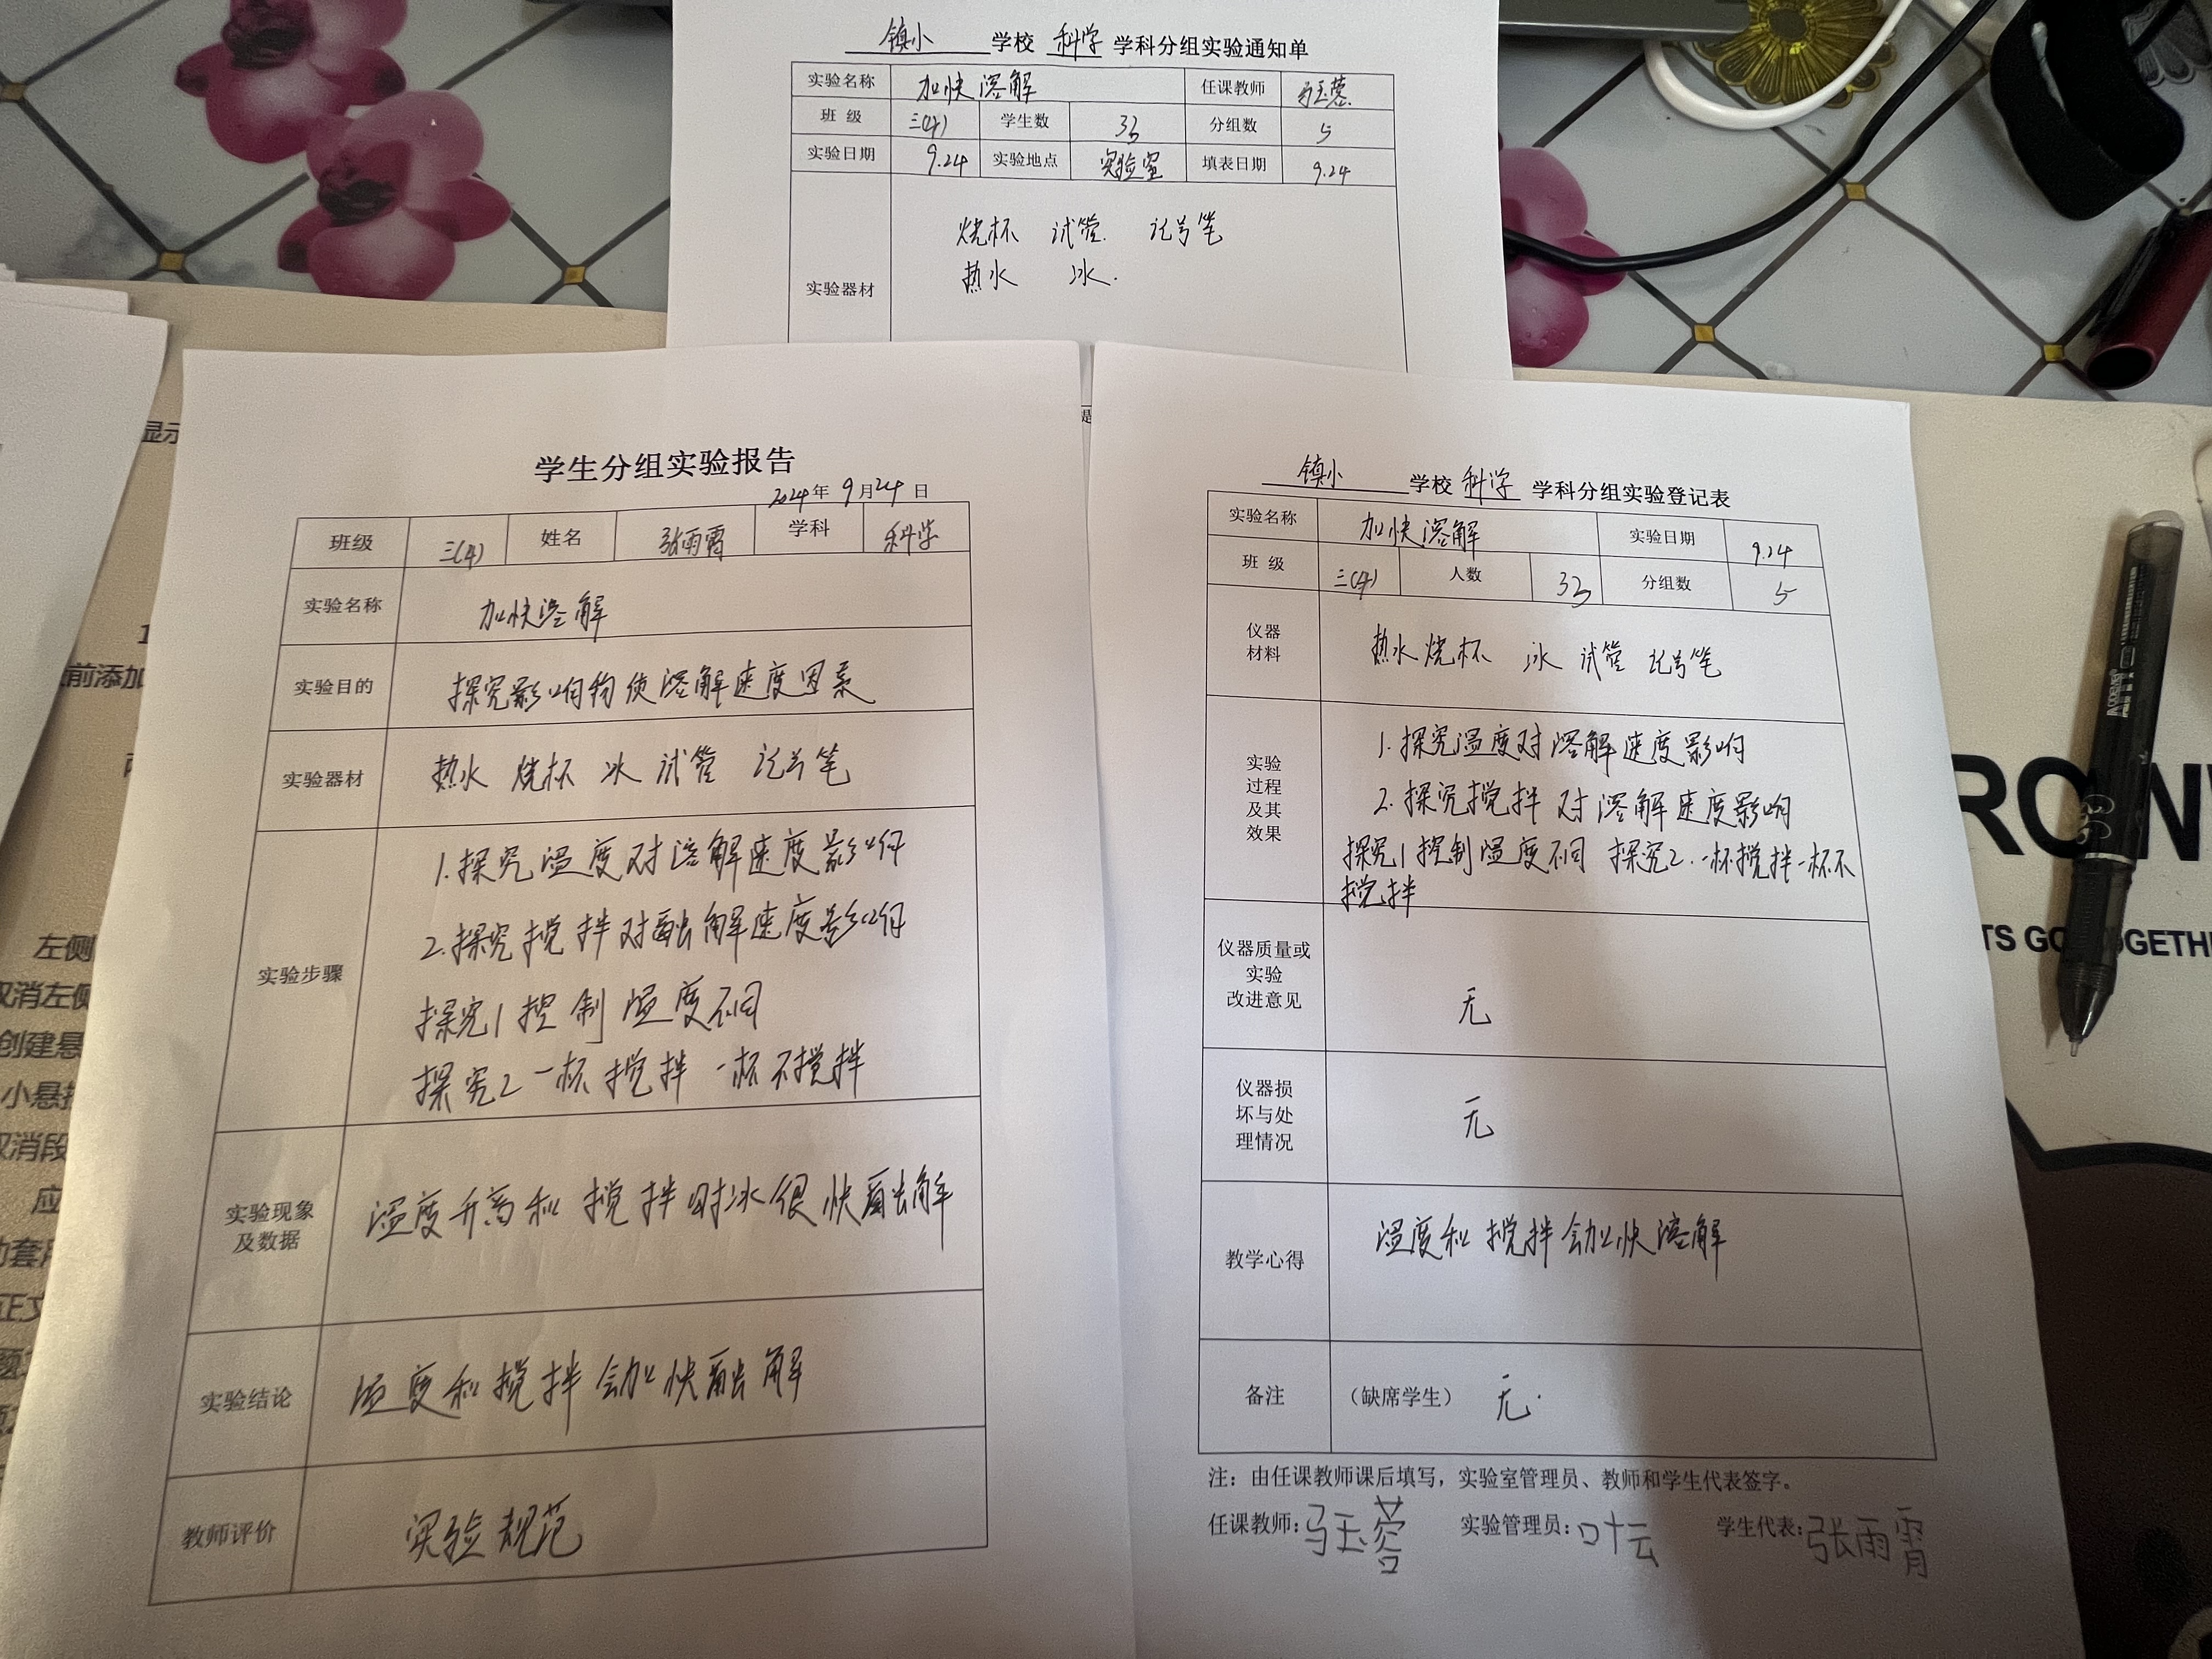 镇小 学校 科学 学科分组实验通知单
实验名称 加快溶解 任课教师 马玉蓉
班 级 三(4) 学生数 33 分组数 5
实验日期 9.24 实验地点 实验室 填表日期 9.24
烧杯 试管 记号笔
热水 冰.
实验器材
学生分组实验报告
2024年 9月24日
班级 三(4) 姓名 张雨霄 学科 科学
实验名称 加快溶解
实验目的 探究影响物质溶解速度因素
实验器材 热水 烧杯 冰 试管 记号笔
实验步骤
1.探究温度对溶解速度影响
2.探究搅拌对融解速度影响
探究1控制温度不同
探究2一杯搅拌一杯不搅拌
实验现象
及数据
温度升高和搅拌时冰很快融解
实验结论 温度和搅拌会加快融解
教师评价 实验规范
镇小 学校 科学 学科分组实验登记表
实验名称 加快溶解 实验日期 9.24
班 级 三(4) 人数 33 分组数 5
仪器
材料
热水烧杯 冰 试管 记号笔
实验
过程
及其
效果
1.探究温度对溶解速度影响
2.探究搅拌对溶解速度影响
探究1控制温度不同 探究2.一杯搅拌一杯不
搅拌
仪器质量或
实验
改进意见
无
仪器损
坏与处
理情况
无
教学心得 温度和搅拌会加快溶解
备注 （缺席学生） 无.
注：由任课教师课后填写，实验室管理员、教师和学生代表签字。
任课教师：马玉蓉 实验管理员：叶云 学生代表：张雨霄
显示
前添加
左侧
取消左侧
创建悬
小悬挂
取消段
应
正文